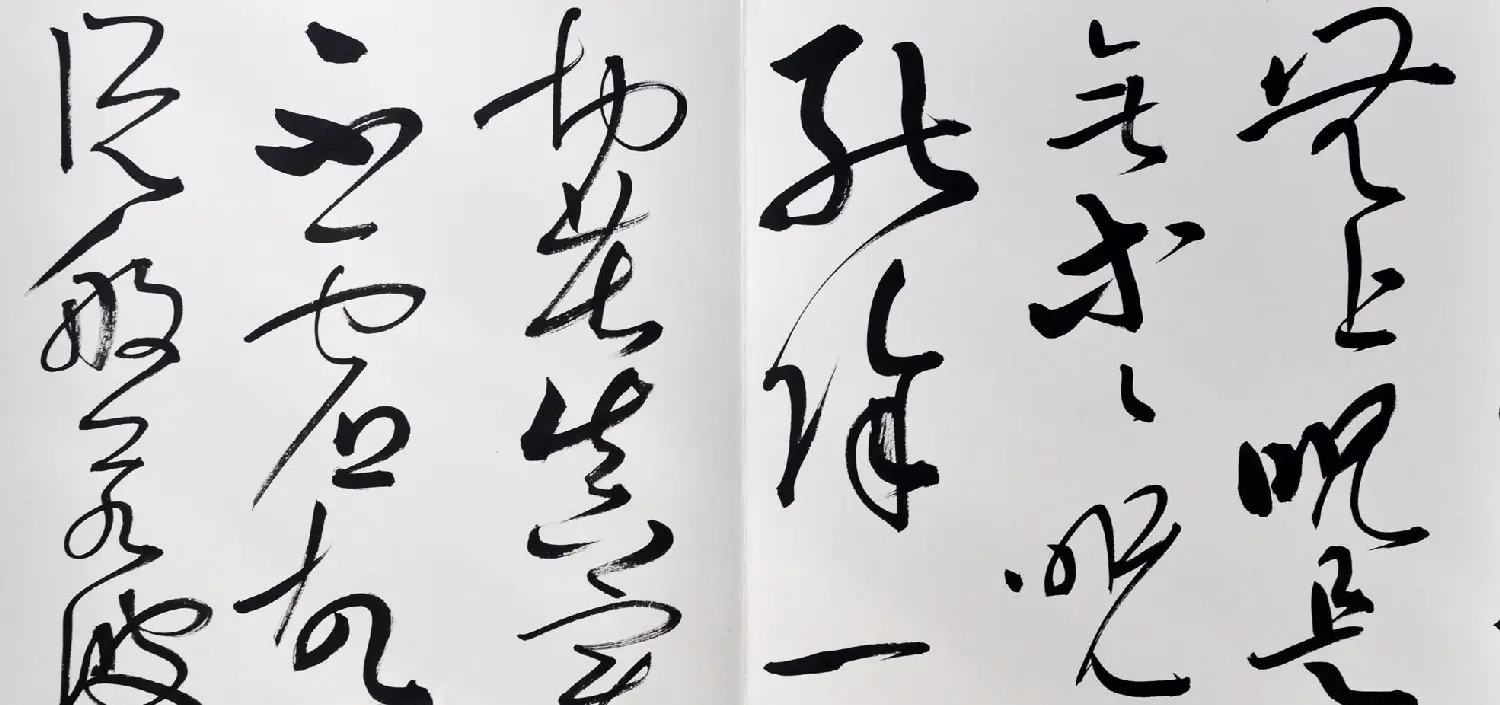 無上呪是
無等等呪
能除一
切苦真實
不虛故
說般若波